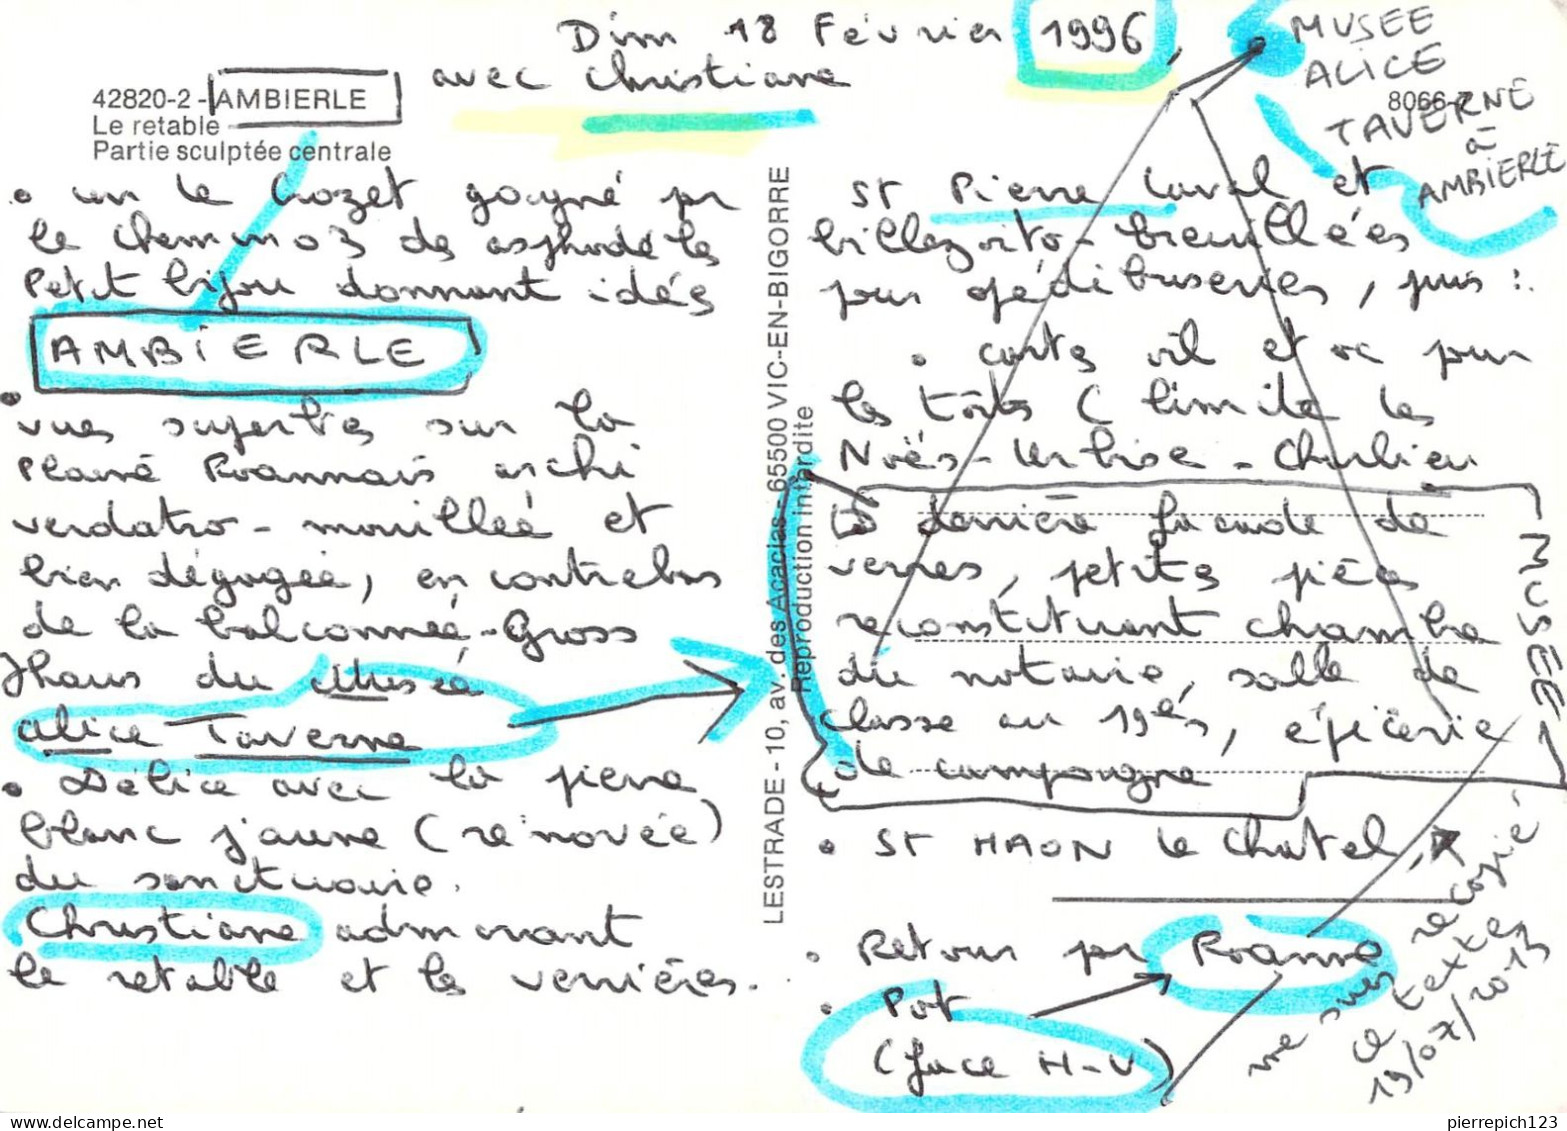 Dim 18 Février 1996,
avec Christiane
MUSEE
ALICE
TAVERNE
à
AMBIERLE
42820-2 - AMBIERLE
8066-
Le retable
Partie sculptée centrale
• un le Crozet gagné pr
le chemin n°3 des asphodèles
Petit bijou donnant idées
AMBIERLE
• vues superbes sur la
plaine Roannais archi
verdatro-mouillée et
bien dégagée, en contrebas
de la balconnée-Gross
Haus du Musée
Alice Taverne
• Délice avec la pierre
blanc jaune (rénovée)
du sanctuaire.
Christiane admirant
le retable et les verrières.
LESTRADE - 10, av. des Acacias - 65500 VIC-EN-BIGORRE
Reproduction interdite
St Pierre Laval et
brouillées
pour pédibuseries, puis :
• cartes vil et oc pour
les toits (limite les
Noës-Urbise-Charlieu
derrière façade de
verres, petites pièces
reconstituant chambre
du notaire, salle de
classe au 19es, épicerie
de campagne
MUSEE
• ST HAON le Chatel
• Retour pr Roanne
• Pot
(face H-V)
me suis recopié
ce texte
19/07/2013
pierrepich123